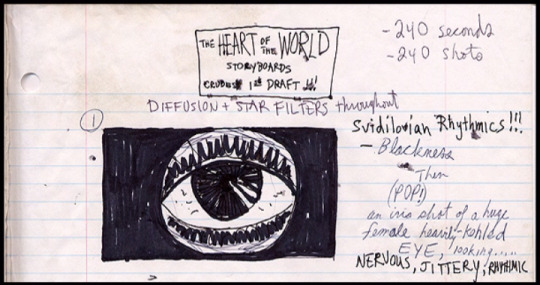 THE HEART OF THE WORLD
STORYBOARDS
CRUDE 1st DRAFT !!!
-240 seconds
-240 shots
DIFFUSION + STAR FILTERS throughout
1
Svidilovian Rhythmics!!!
- Blackness
Then
(POP!)
an iris shot of a huge
female heavily-kohled
EYE, looking.....
NERVOUS, JITTERY, RHYTHMIC